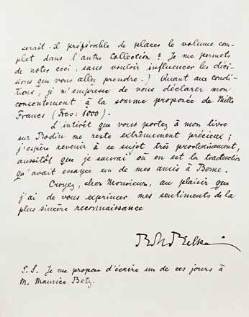 serait-il préférable de placer le volume com-
plet dans l'autre collection? Je me permets
de noter ceci, sans vouloir influencer les déci-
sions que vous allez prendre.) Quant aux condi-
tions, je m'empresse de vous déclarer mon
consentement à la somme proposée de Mille
Francs (frcs: 1000).
L'intérêt que vous portez à mon livre
sur Rodin me reste extrêmement précieux;
j'espère revenir à ce sujet très prochainement,
aussitôt que je saurai où en est la traduction
qu'avait essayée un de mes amis à Rome.
Croyez, cher Monsieur, au plaisir que
j'ai de vous exprimer mes sentiments de la
plus sincère reconnaissance
P.S. Je me propose d'écrire un de ces jours à
M. Maurice Betz.